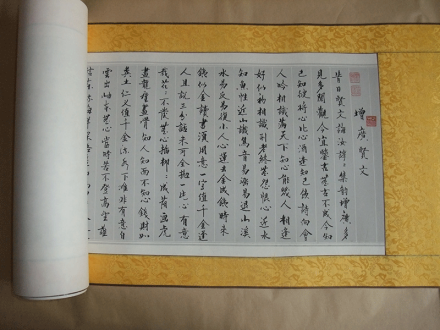 增廣賢文
昔日賢文誨汝諄〻集韻增廣多
見多聞觀今宜鑒古無古不成今知
己知彼將心比心酒逢知己飲詩向會
人吟相識滿天下知心能幾人相逢
好似初相識到老終無怨恨心近水
知魚性近山識鳥音易漲易退山溪
水易反易復小人心運去金成鐵時來
鐵似金讀書須用意一字值千金逢
人且說三分話未可全拋一片心有意
栽花花不發無心插柳柳成蔭畫虎
畫龍難畫骨知人知面不知心錢財如
糞土仁義值千金流水下灘非有意白
雲出岫本無心當時若不登高望誰